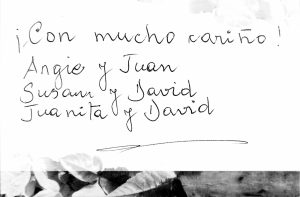 ¡Con mucho cariño!
Angie y Juan
Susan y David
Juanita y David